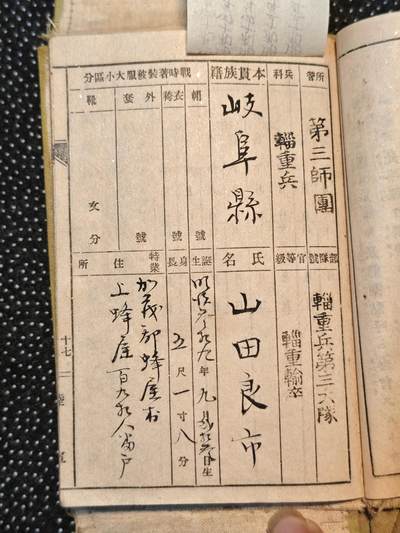 所管
第三師團
兵科
輜重兵
本貫族籍
岐阜縣
戰時著裝被服大小區分
帽
號
衣袴
號
外套
號
靴
文
分
部隊號
輜重兵第三大隊
官等級
輜重輸卒
氏名
山田良市
誕生
明治 拾九年九月 日生
身長
五尺一寸八分
特業
住所
加茂郡蜂屋村
上蜂屋百九拾八番戸
十七